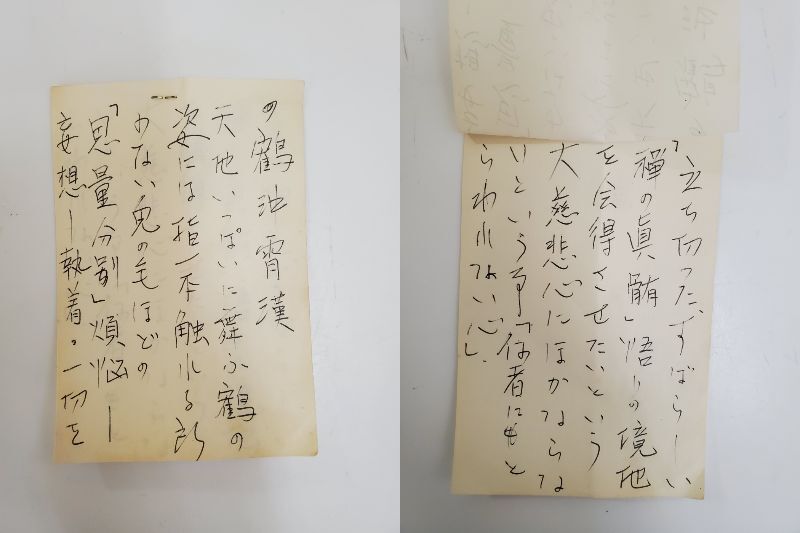 の鶴沖霄漢
天地いっぱいに舞ふ鶴の
姿には指一本触れる所
のない兎の毛ほどの
「思量分別」煩悩ー
妄想ー執着。一切を
「立ち切った、すばらしい
禅の眞髄」悟りの境地
を会得させたいという
大慈悲心にほかならな
いという事「何者にもと
らわれない心」